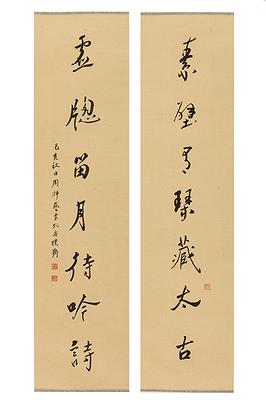 素壁有琴藏太古
虛牕留月待吟詩
己亥秋日周